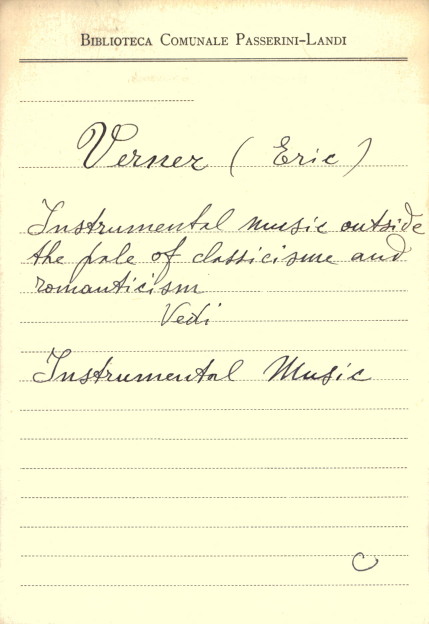 BIBLIOTECA COMUNALE PASSERINI-LANDI
Verner (Eric)
Instrumental music outside
the pale of classicisme and
romanticism
Vedi
Instrumental Music
C